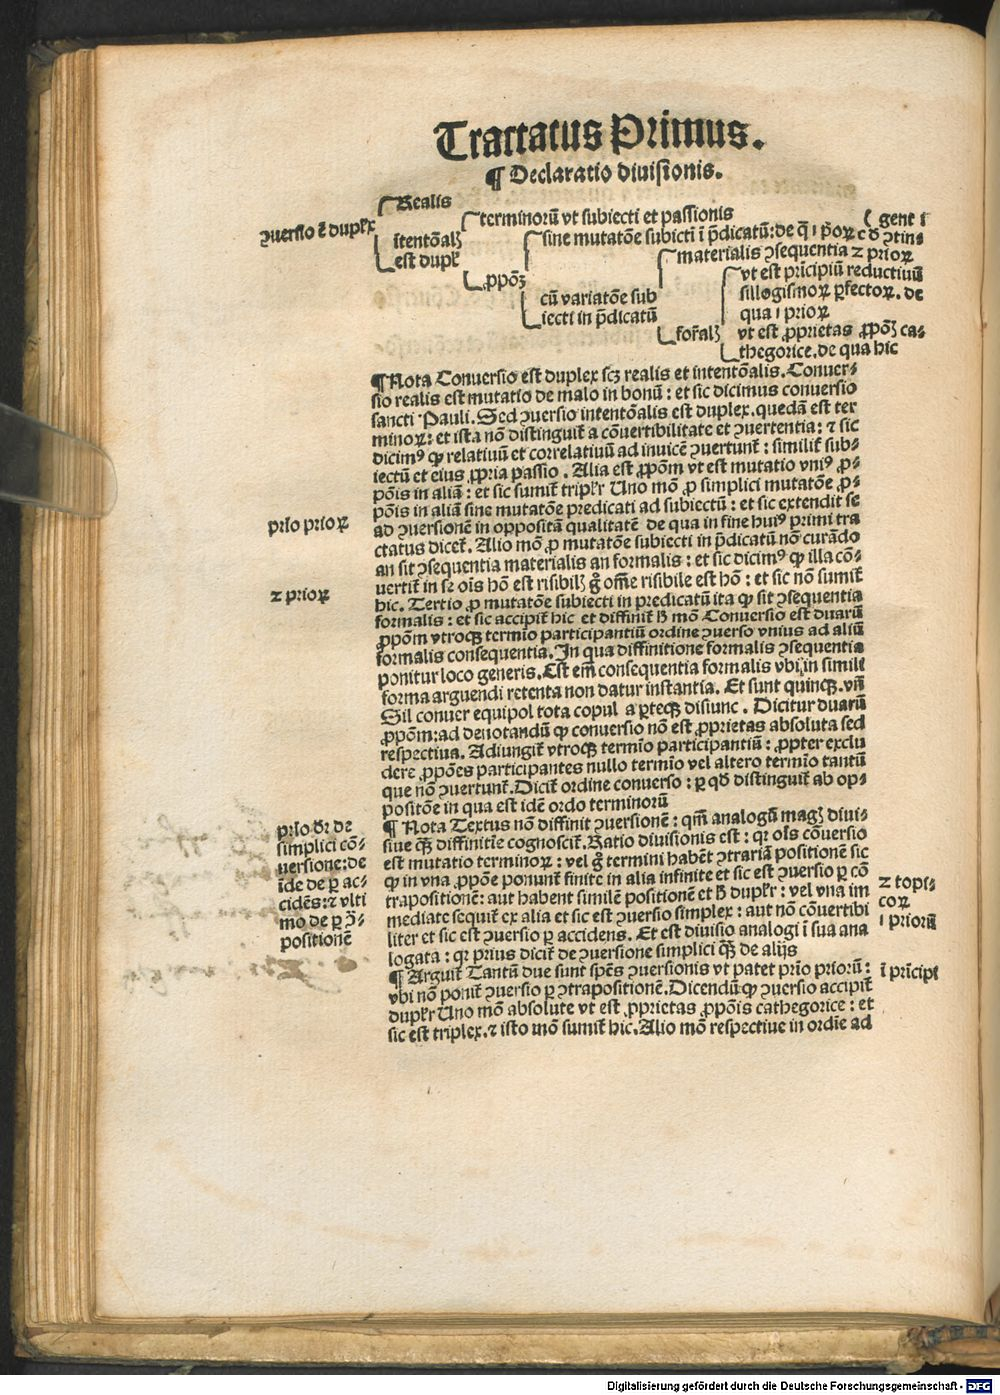 Tractatus Primus.
¶ Declaratio diuisionis.
ꝯuersio ē duplex
Realis
ītentōalꝫ
est duplꝛ
terminorū vt subiecti et passionis
ꝓpōꝫ
sine mutatōe subiecti ī p̄dicatū: de q̄ ı p̄oꝝ
cū variatōe sub
iecti in p̄dicatū
materialis ꝯsequentia ⁊ prioꝝ
for̄alꝫ
vt est prīcipiū reductiuū
sillogismoꝝ ꝑfectoꝝ. de
qua ı prioꝝ
vt est ꝓprietas ꝓpōꝫ ca-
thegorice. de qua hic
¶ Nota Conuersio est duplex scꝫ realis et intentōalis. Conuer-
sio realis est mutatio de malo in bonū: et sic dicimus conuersio
sancti Pauli. Sed ꝯuersio intentōalis est duplex. quedā est ter
minoꝝ: et ista nō distinguit̄ a cōuertibilitate et ꝯuertentia: ⁊ sic
dicimꝰ ꝙ relatiuū et correlatiuū ad inuicē ꝯuertunt̄: similit̄ sub-
iectū et eius ꝓpria passio. Alia est ꝓpōm vt est mutatio vniꝰ ꝓ-
pōis in aliā: et sic sumit̄ triplꝛ Uno mō ꝓ simplici mutatōe ꝓ-
pōis in aliā sine mutatōe predicati ad subiectū: et sic extendit se
ad ꝯuersionē in oppositā qualitatē de qua in fine huiꝰ primi tra
ctatus dicet̄. Alio mō ꝓ mutatōe subiecti in p̄dicatū nō curādo
an sit ꝯsequentia materialis an formalis: et sic dicimꝰ ꝙ illa cō-
uertit̄ in se oīs hō est risibilꝫ g̊ om̄e risibile est hō: et sic nō sumit̄
hic. Tertio ꝓ mutatōe subiecti in predicatū ita ꝙ sit ꝯsequentia
formalis: et sic accipit̄ hic et diffinit̄ ꝧ mō Conuersio est duarū
ꝓpōm vtroqꝫ termīo participantiū ordine ꝯuerso vnius ad aliū
formalis consequentia. In qua diffinitione formalis ꝯsequentia
ponitur loco generis. Est em̄ consequentia formalis vbi in simili
forma arguendi retenta non datur instantia. Et sunt quinqꝫ. vn̄
Sil conuer equipol tota copul a ꝑteqꝫ disiunc. Dicitur duarū
ꝓpōm: ad denotandū ꝙ conuersio nō est ꝓprietas absoluta sed
respectiua. Adiungit̄ vtroqꝫ termīo participantiū: ꝓpter exclu
dere ꝓpōes participantes nullo termīo vel altero termīo tantū
que nō ꝯuertunt̄. Dicit̄ ordine conuerso: ꝑ qđ distinguit̄ ab op-
positōe in qua est idē ordo terminorū
¶ Nota Textus nō diffinit ꝯuersionē: qm̄ analogū magꝫ diui-
siue qꝫ diffinitīe cognoscit̄. Ratio diuisionis est: qꝛ oīs cōuersio
est mutatio terminoꝝ: vel g̊ termini habēt ꝯtrariā positionē sic
ꝙ in vna ꝓpōe ponunt̄ finite in alia infinite et sic est ꝯuersio ꝑ cō
trapositionē: aut habent similē positionē et ꝧ duplꝛ: vel vna im
mediate sequit̄ ex alia et sic est ꝯuersio simplex: aut nō cōuertibi
liter et sic est ꝯuersio ꝑ accidens. Et est diuisio analogi ī sua ana
logata: qꝛ prius dicit̄ de ꝯuersione simplici qꝫ̄ de alijs
¶ Arguit̄ Tantū due sunt spēs ꝯuersionis vt patet prīo priorū:
vbi nō ponit̄ ꝯuersio ꝑ ꝯtrapositionē. Dicendū ꝙ ꝯuersio accipit̄
duplꝛ Uno mō absolute vt est ꝓprietas ꝓpōis cathegorice: et
sic est triplex. ⁊ isto mō sumit̄ hic. Alio mō respectiue in ordīe ad
prīo prioꝝ
⁊ prioꝝ
prīo dr̄ de
simplici cō-
uersione: de
īde de ꝑ ac-
cidēs: ⁊ vlti
mo de ꝑ ꝯ̄-
positionē
⁊ topi-
coꝝ
ı priorū
ī prīcipꝫ